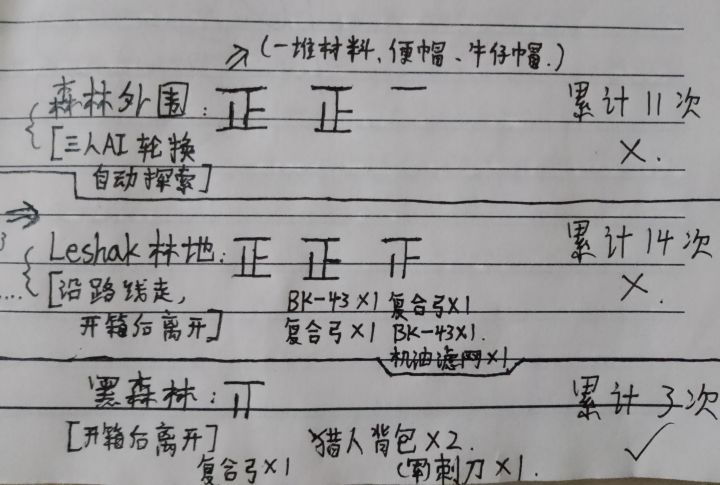 (一堆材料、便帽、牛仔帽.)
森林外围:正 正 一 累计11次
[三人AI轮换 ×.
自动探索]
Leshak林地:正 正 累计14次
[沿路线走, ×.
BK-43×1 复合弓×1
开箱后离开] 复合弓×1 BK-43×1.
机油滤网×1
黑森林: 累计3次
[开箱后离开] 猎人背包×2. ✓
复合弓×1 刺刀×1.